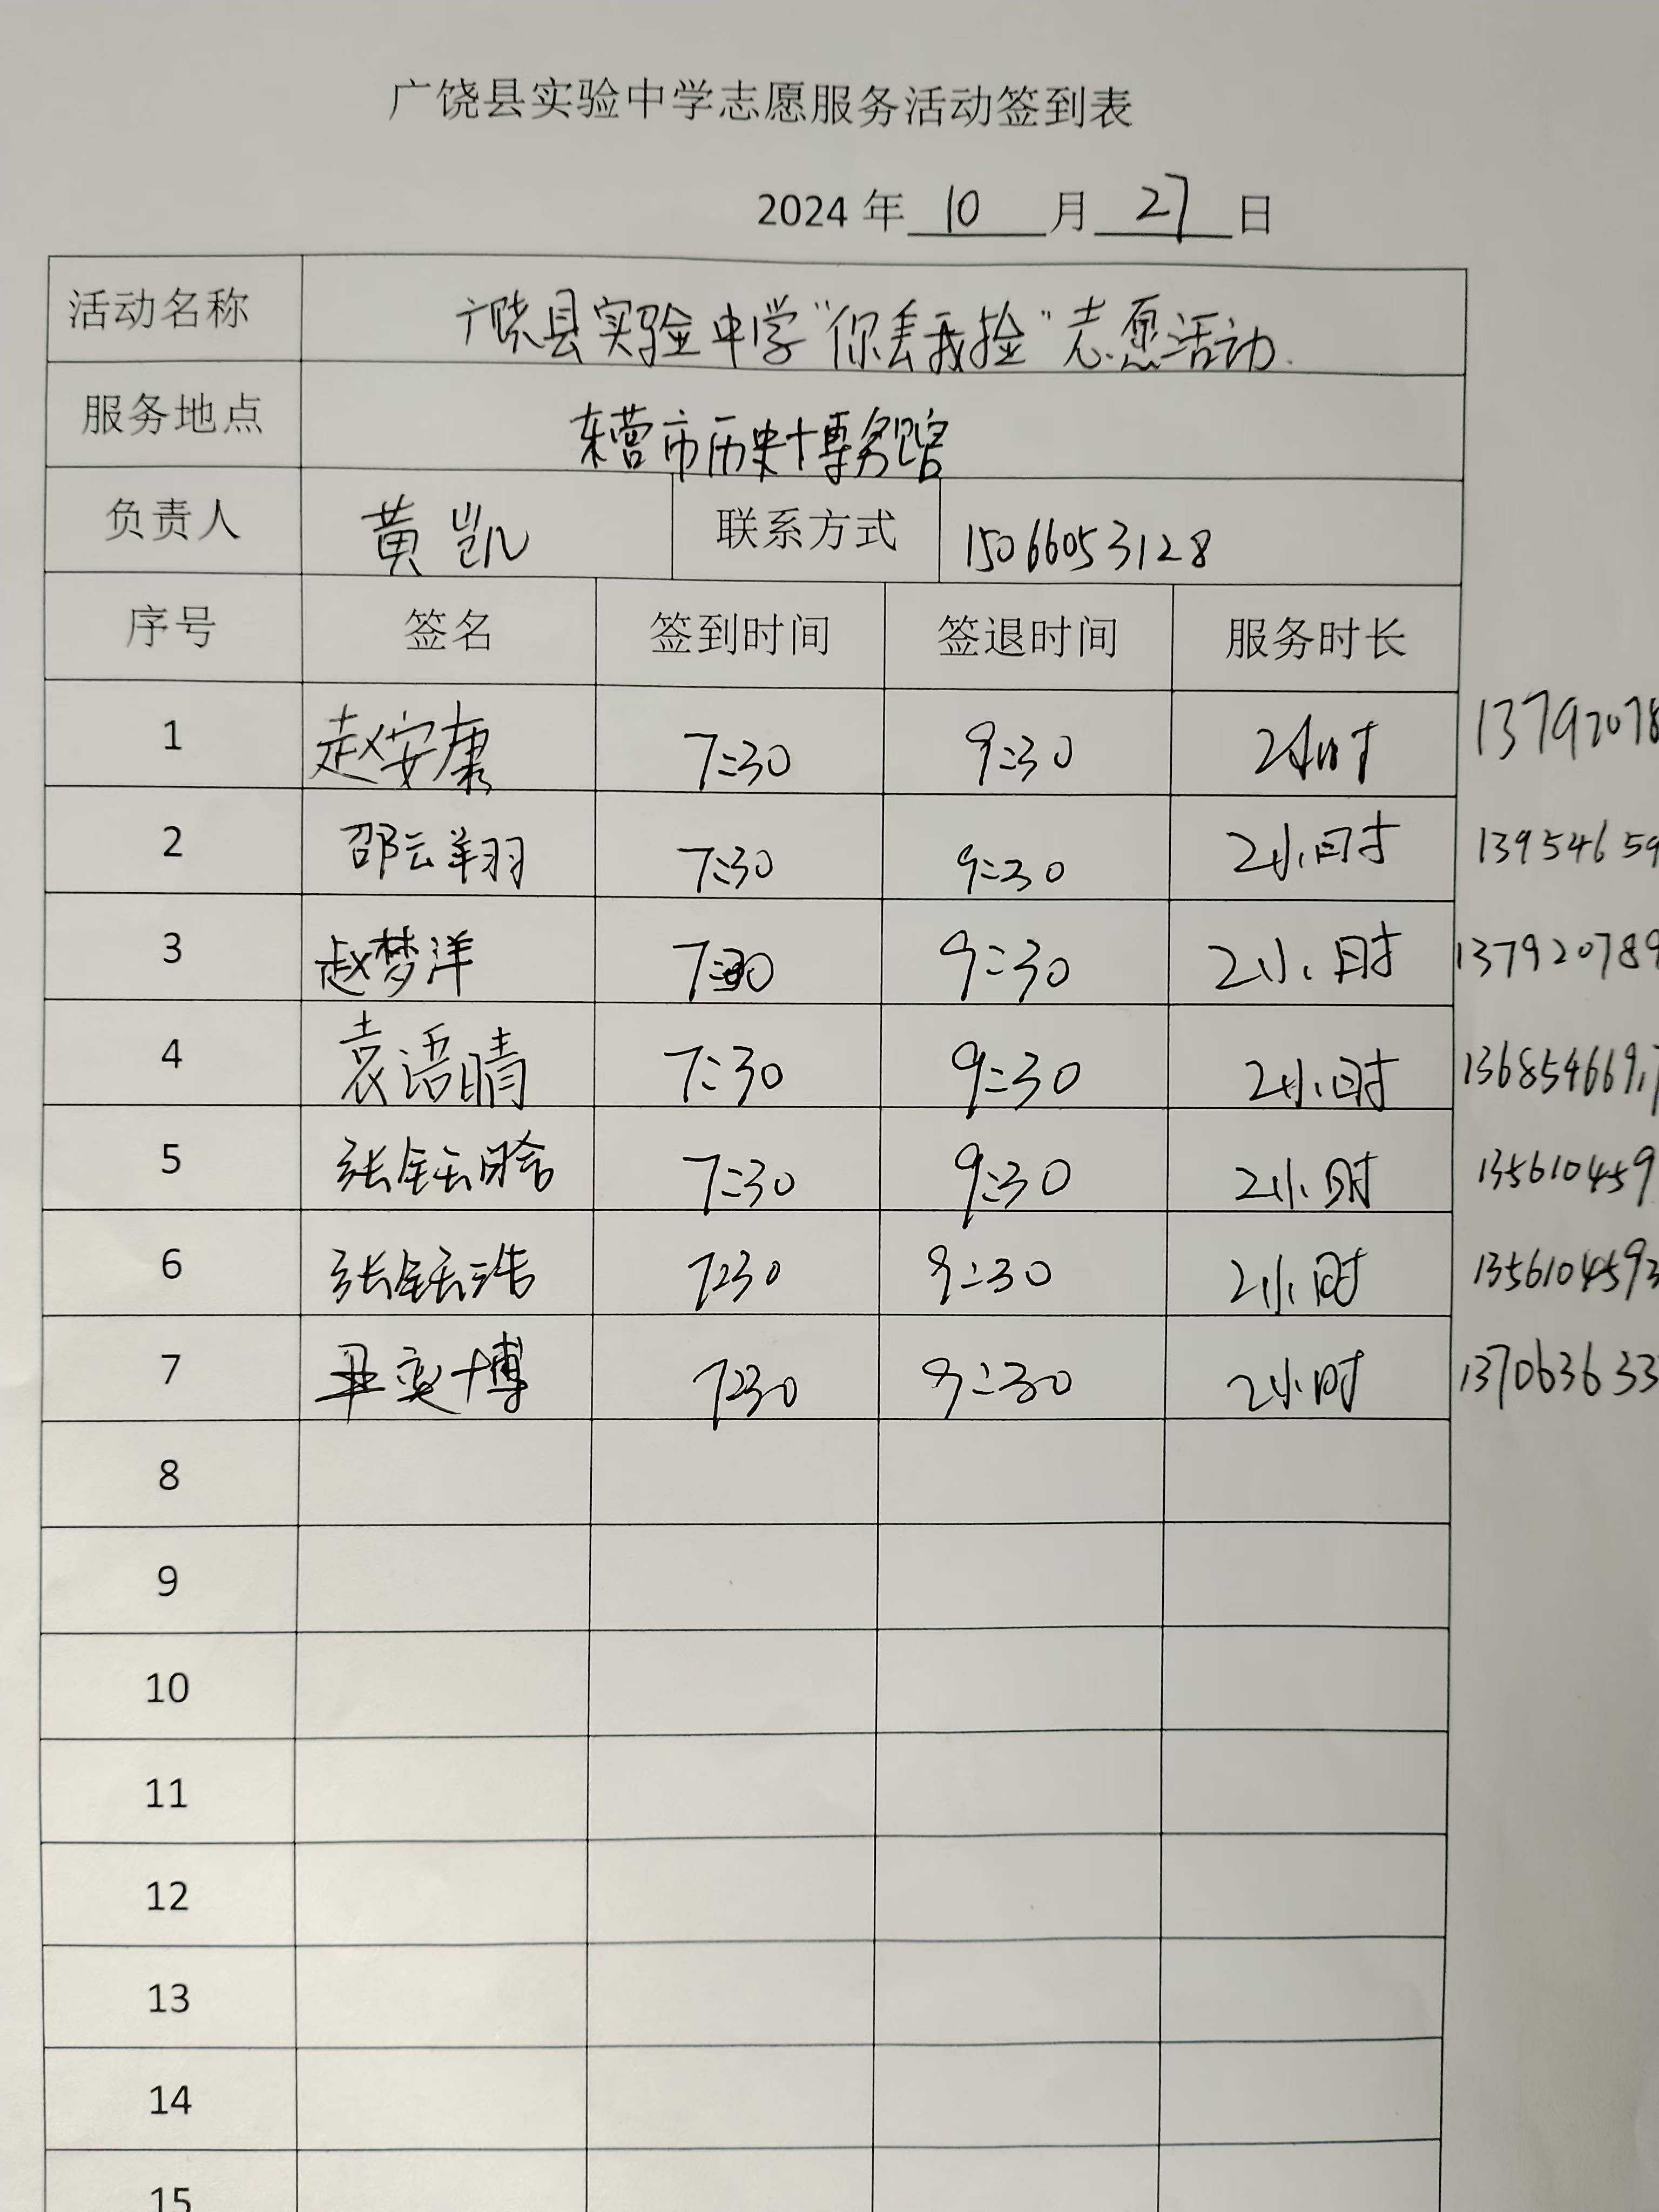 广饶县实验中学志愿服务活动签到表
2024 年 10 月 27 日
活动名称 广饶县实验中学“你丢我捡”志愿活动.
服务地点 东营市历史博物馆
负责人 黄凯 联系方式 15066053128
序号 签名 签到时间 签退时间 服务时长
1 赵安康 7:30 9:30 2小时 13792078
2 邵云翔 7:30 9:30 2小时 13954659
3 赵梦洋 7:30 9:30 2小时 137920789
4 袁语晴 7:30 9:30 2小时 136854669
5 张钰晗 7:30 9:30 2小时 135610459
6 张钰浩 7:30 9:30 2小时 1356104593
7 奕博 7:30 9:30 2小时 137063633
8
9
10
11
12
13
14
15